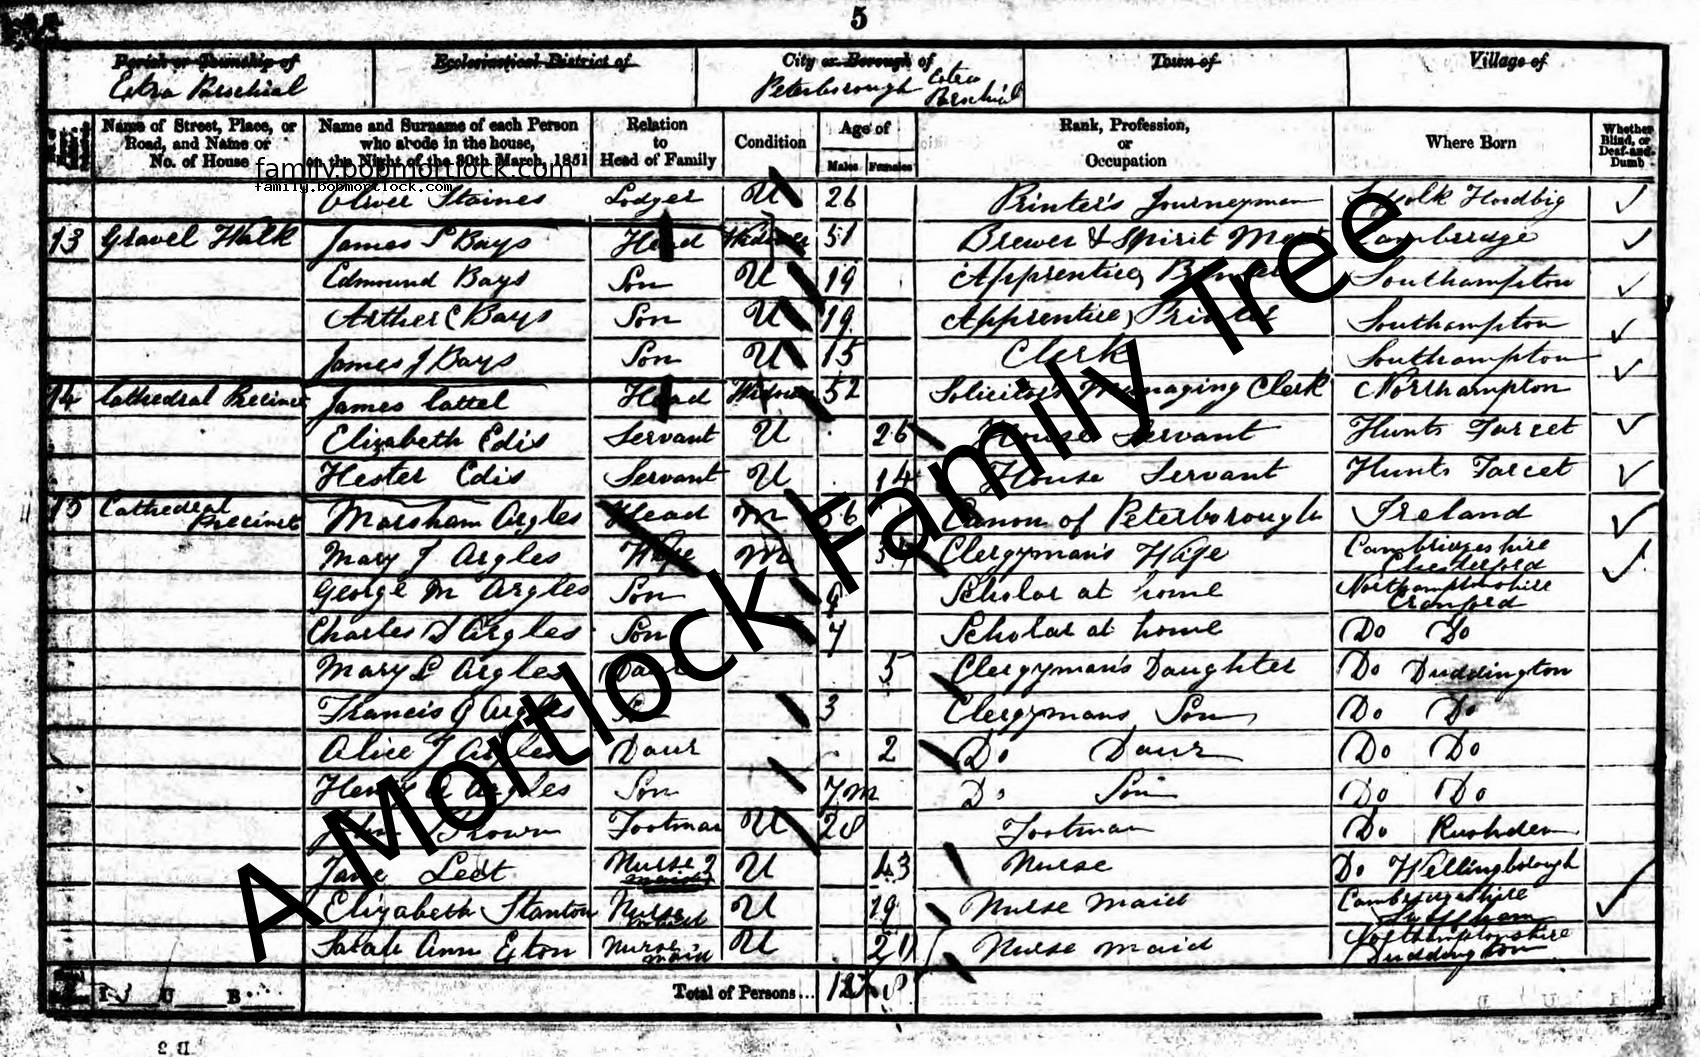 5
Parish or Township of
Ecclesiastical District of
City or Borough of
Town of
Village of
Extra Parochial
Peterborough Extra Parochial
Name of Street, Place, or Road, and Name or No. of House
Name and Surname of each Person who abode in the house, on the Night of the 30th March, 1851
Relation to Head of Family
Condition
Age of
Males Females
Rank, Profession, or Occupation
Where Born
Whether Blind, or Deaf-and-Dumb
family.bobmortlock.com
family.bobmortlock.com
Oliver Staines Lodger U 26 Printer's Journeyman
13 Gravel Walk James S Bays Head Widower 51 Brewer & Spirit Mert Cambridge
Edmund Bays Son U 19 Apprentice, Southampton
Arther C Bays Son U 19 Apprentice, Printer Southampton
James J Bays Son U 15 Clerk Southampton
14 Cathedral Precinct James Cattel Head Widower 52 Solicitor's Managing Clerk Northampton
Elizabeth Edis Servant U 26 House Servant Hunts Farcet
Hester Edis Servant U 14 House Servant Hunts Farcet
15 Cathedral Precinct Marsham Argles Head M 36 Canon of Peterborough Ireland
Mary J Argles Wife M Clergyman's Wife Cambridgeshire Chesterford
George M Argles Son Scholar at home Northamptonshire Cranford
Charles D Argles Son 7 Scholar at home Do Do
Mary L Argles Daur 5 Clergyman's Daughter Do Duddington
Francis G Argles Son 3 Clergymans Son Do Do
Alice J Argles Daur 2 Do Daur Do Do
Henry Argles Son 7m Do Son Do Do
John Footman U 28 Footman Do Rushden
Jane Lett Nurse U 43 Nurse Do Wellingborough
Elizabeth Stanton Nurse maid U 19 Nurse Maid Cambridgeshire
Sarah Ann Exton Nurse maid U 20 Nurse maid Northamptonshire Duddington
I 3 U B
Total of Persons... 12 8
A Mortlock Family Tree